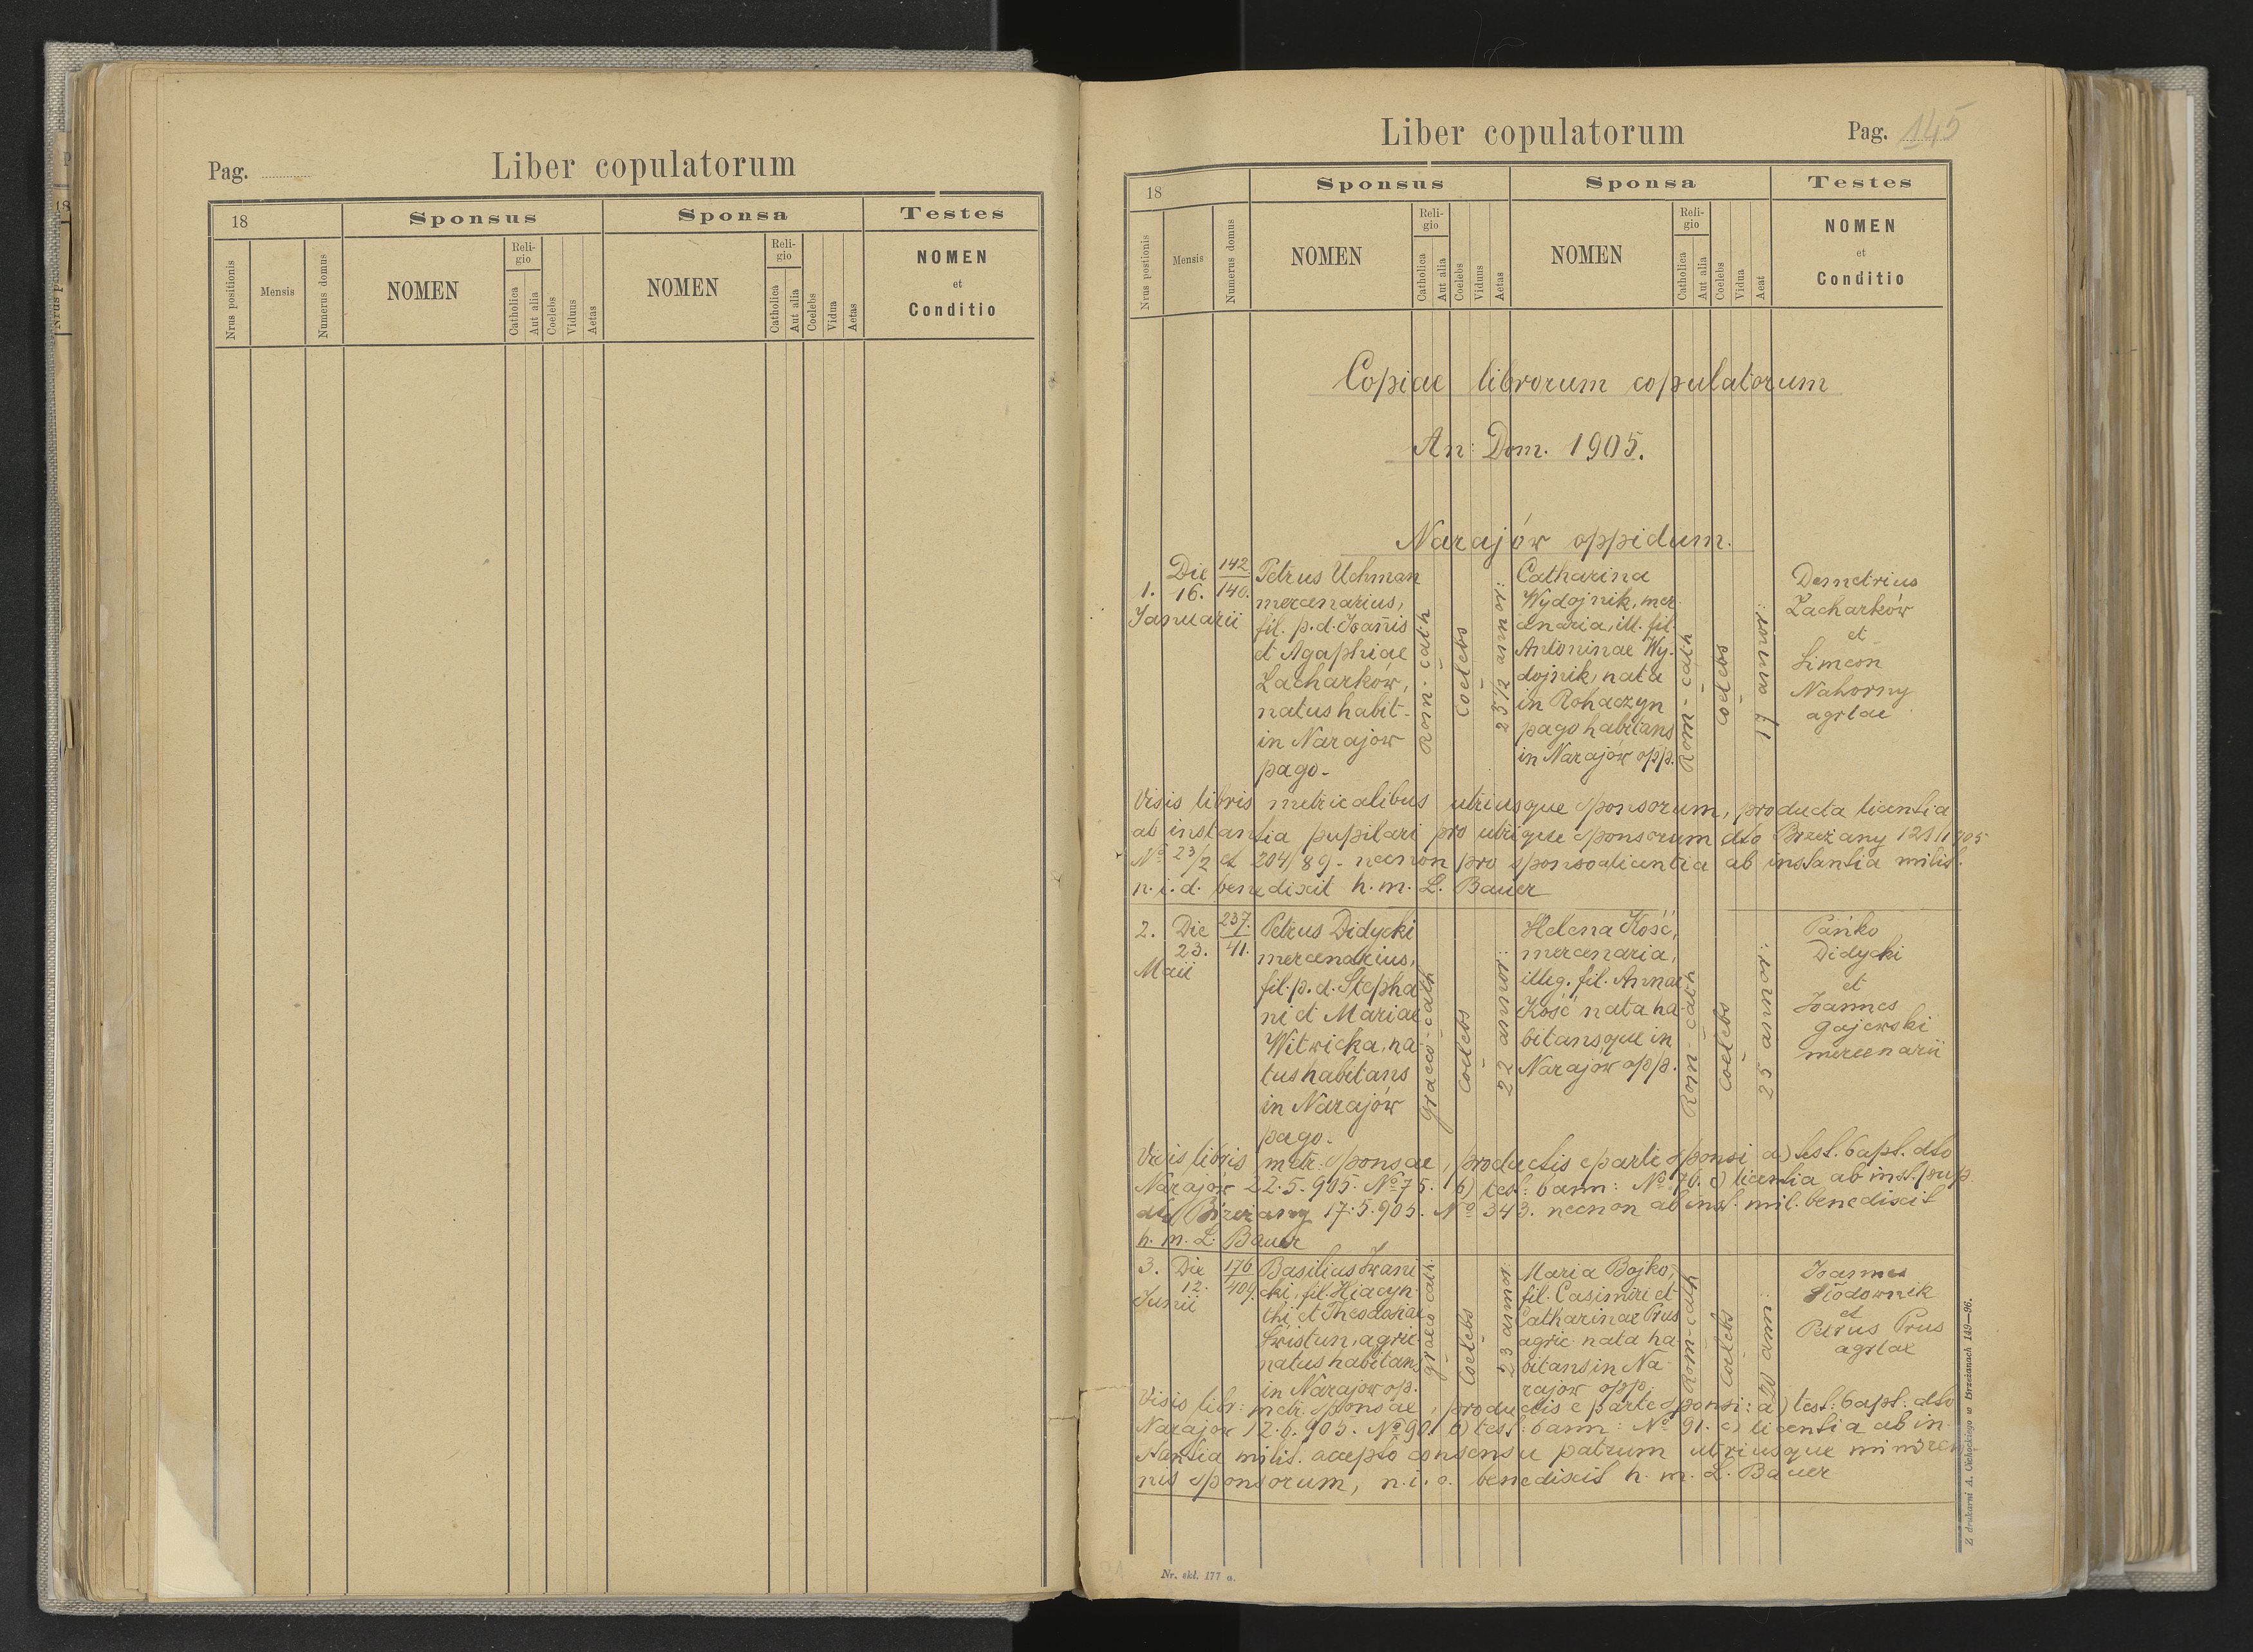 Pag.
Liber copulatorum
18
Sponsus
Sponsa
Testes
Nrus positionis
Mensis
Numerus domus
NOMEN
Reli-
gio
Catholica
Aut alia
Coelebs
Viduus
Aetas
NOMEN
Reli-
gio
Catholica
Aut alia
Coelebs
Vidua
Aetas
NOMEN
et
Conditio
Liber copulatorum
Pag. 145
18
Sponsus
Sponsa
Testes
Nrus postionis
Mensis
Numerus domus
NOMEN
Reli-
gio
Catholica
Aut alia
Coelebs
Viduus
Aetas
NOMEN
Reli-
gio
Catholica
Aut alia
Coelebs
Vidua
Aeat
NOMEN
et
Conditio
Copiae librorum copulatorum
An: Dom. 1905.
Narajów oppidum.
1.
Die
16.
Januarii
142.
140.
Petrus Uchman
mercenarius,
fil. p.d. Joañis
et Agaphiae
Zacharków,
natus habit-
in Narajow
pago.
Rom-cath
coelebs
25 1/2 annor:
Catharina
Wydojnik, mer
cenaria, ill. fil.
Antoninae Wy-
dojnik, nata
in Rohaczyn
pago habitans
in Narajów opp.
Rom-cath
coelebs
17 annor:
Demetrius
Zacharków
et
Simeon
Nahorny
agrlae
Visis libris metricalibus utriusque sponsorum, producta licentia
ab instantia pupilari pro utrique sponsorum dto Brzeżany 121/1 905
No 23/2 et 204/89. necnon pro sponso licentia ab instantia milit.
n. i. d. benedixit h. m. L. Bauer
2.
Die
23.
Maii
237.
41.
Petrus Didycki
mercenarius,
fil. p. d. Stepha
ni et Mariae
Witwicka, na
tus habitans
in Narajów
pago.
graeco-cath
coelebs
22 annor:
Helena Kość,
mercenaria,
illeg. fil. Annae
Kość nata ha
bitansque in
Narajow opp.
Rom-cath
coelebs
25 annor:
Pańko
Didycki
et
Joannes
Gajewski
mercenarii
Visis libris metr: sponsae, productis e parte sponsi a) test. bapt. dto
Narajow 22.5.905. No 75. b) test: bann: No 76. c) licentia ab inst. pup.
dto Brzeżany 17.5.905. No 343. necnon ab inst. mil. benedixit
h. m. L. Bauer
3.
Die
12.
Junii
176
409
Basilius Iwani
cki, fil. Hiacyn
thi et Theodosiae
Swistun, agric
natus habitans
in Narajow op.
graeco cath.
coelebs
23 annor:
Maria Bojko,
fil. Casimiri et
Catharinae Prus
agric. nata ha
bitans in Na
rajow opp.
Rom-cath
coelebs
20 ann:
Joannes
Słodownik
et
Petrus Prus
agrlae
Visis libr: metr. sponsae, productis e parte sponsi: a) test: bapt: dto
Narajow 12.6.905. No 90. b) test: bann: No 91. c) licentia ab in
stantia milit. accepto consensu patrum utriusque minoren
nis sponsorum, n. i. o. benedixit h. m. L. Bauer
Nr. skł. 177 a.
Z drukarni A. Cichockiego w Brzeżanach 149—96.